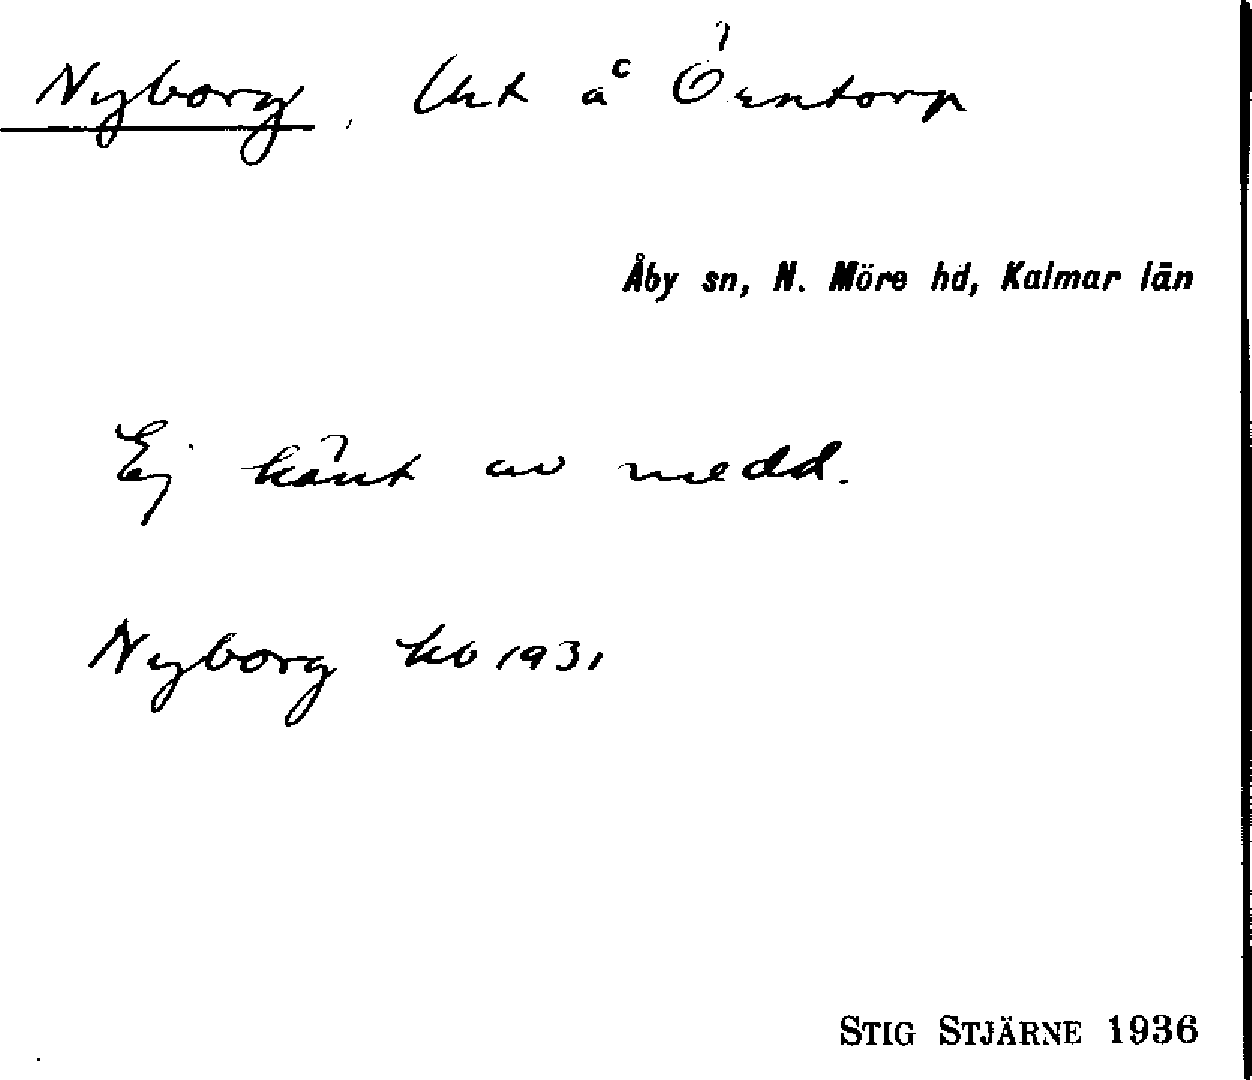 Nyborg, Utt å
Åby sn, N. Möre hd, Kalmar län
Ej känt av medd.
Nyborg kb 1931
STIG STJÄRNE 1936